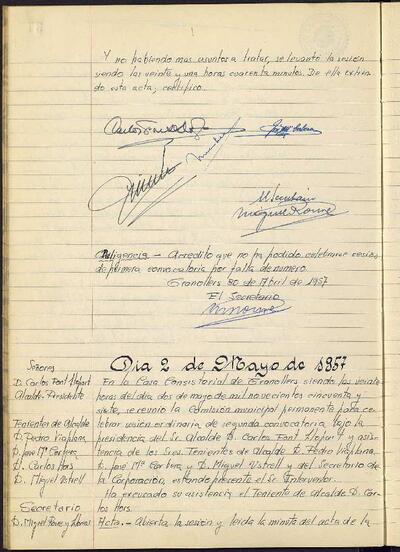 Y no habiendo mas asuntos a tratar, se levantó la sesión
siendo las veinte y una horas cuarenta minutos. De ella extiendo
esta acta; certifico.
Diligencia.- Acredito que no ha podido celebrarse sesión
de primera convocatoria por falta de número
Granollers 30 de Abril de 1957
El Secretario
Dia 2 de Mayo de 1957
Señores
D. Carlos Font Llopart
Alcalde-Presidente
Tenientes de Alcalde
D. Pedro Viaplana
D. José Mª Cortera
D. Carlos Hors
D. Miguel Ustrell
Secretario
D. Miguel Roure y
En la Casa Consistorial de Granollers siendo las veinte
horas del dia dos de mayo de mil novecientos cincuenta y
siete, se reunió la Comisión municipal permanente para ce-
lebrar sesión ordinaria de segunda convocatoria, bajo la
presidencia del Sr. Alcalde D. Carlos Font Llopart y asisten-
cia de los Sres. Tenientes de Alcalde D. Pedro Viaplana,
D. José Mª Cortera y D. Miguel Ustrell y del Secretario de
la Corporación, estando presente el Sr. Interventor.
Ha excusado su asistencia el Teniente de Alcalde D. Car-
los Hors.
Acta.- Abierta la sesión y leida la minuta del acta de la